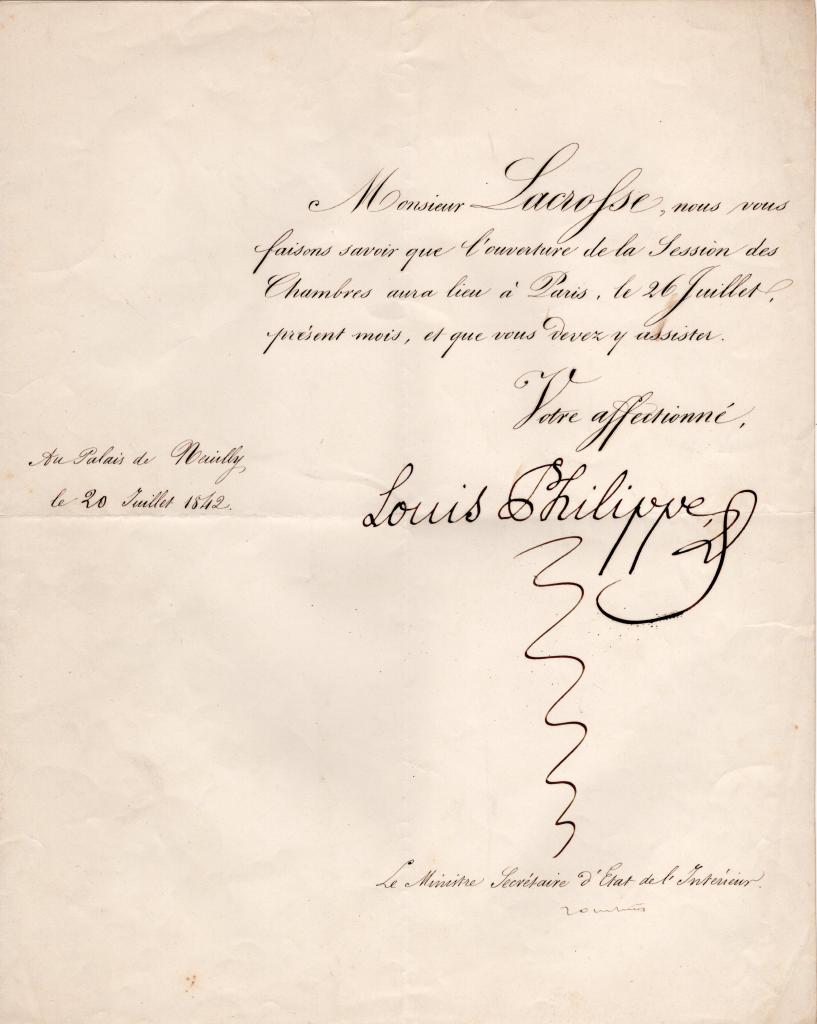 Monsieur Lacrosse, nous vous
faisons savoir que l'ouverture de la Session des
Chambres aura lieu à Paris, le 26 Juillet,
présent mois, et que vous devez y assister.
Votre affectionné,
Au Palais de Neuilly
le 20 Juillet 1842.
Louis Philippe
Le Ministre Secrétaire d'Etat de l'Intérieur.